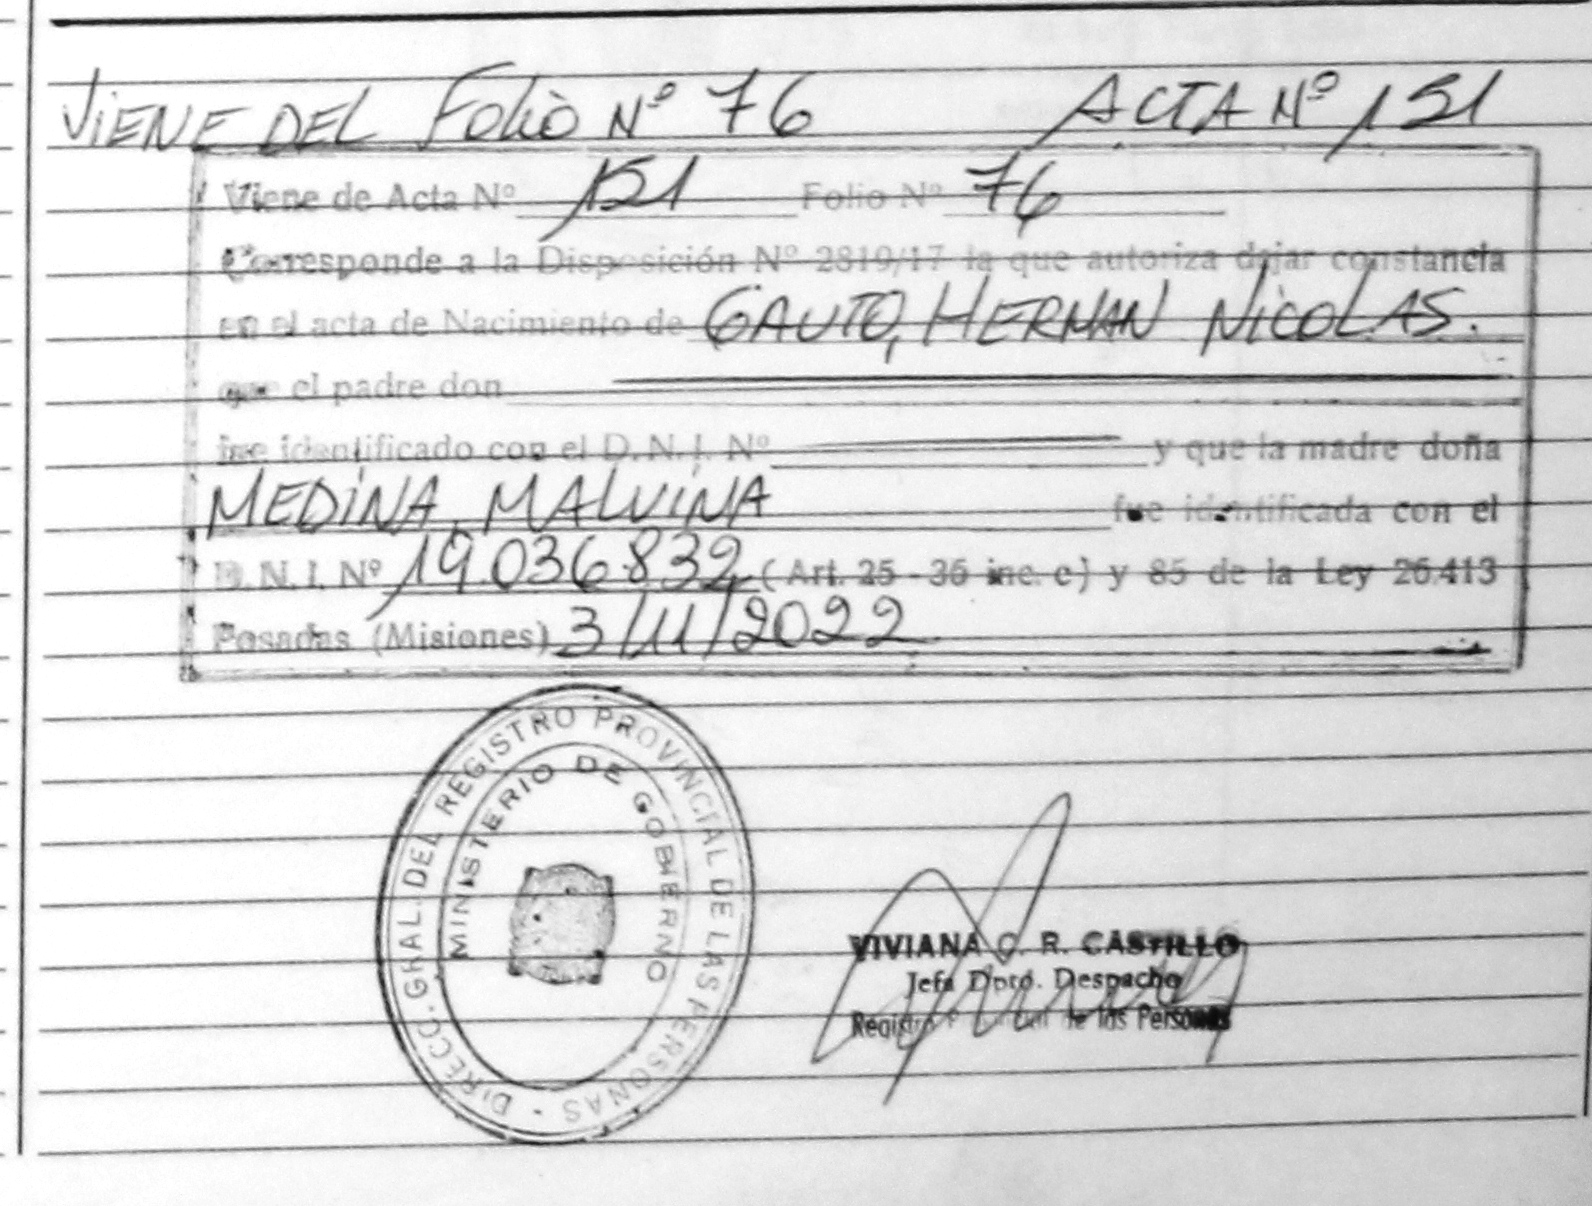 VIENE DEL FOLIO Nº 76 ACTA Nº 151
Viene de Acta Nº 151 Folio Nº 76
Corresponde a la Disposición Nº 2819/17 la que autoriza dejar constancia
en el acta de Nacimiento de GAUTO, HERNAN NICOLAS.
que el padre don
fue identificado con el D.N.I. Nº y que la madre doña
MEDINA, MALVINA fue identificada con el
D.N.I. Nº 19.036.832 (Art. 25 - 36 inc. c) y 85 de la Ley 26.413
Posadas (Misiones) 3/11/2022
DIRECC. GRAL. DEL REGISTRO PROVINCIAL DE LAS PERSONAS -
MINISTERIO DE GOBIERNO
VIVIANA C. R. CASTILLO
Jefa Dpto. Despacho
Registro de las Personas